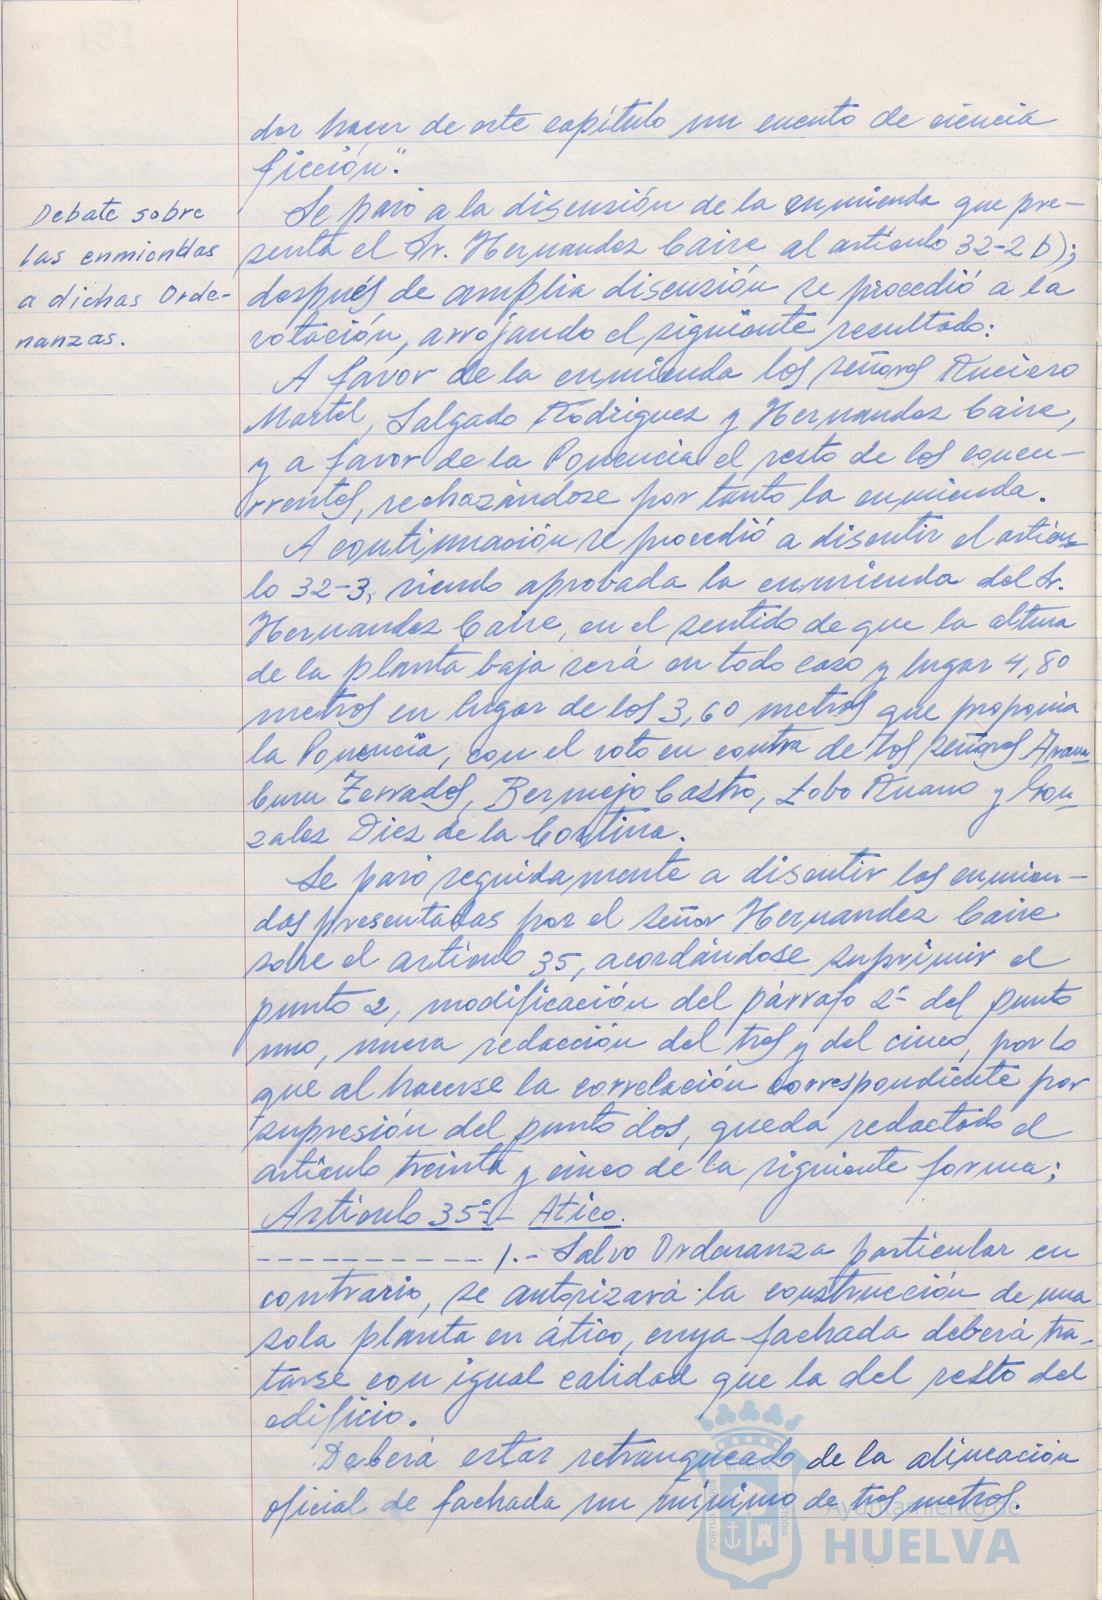 dor hacer de este capítulo un cuento de ciencia
ficción".
Debate sobre
las enmiendas
a dichas Orde-
nanzas.
Se pasó a la discusión de la enmienda que pre-
senta el Sr. Hernandez Caire al artículo 32-2 b);
después de amplia discusión se procedió a la
votación, arrojando el siguiente resultado:
A favor de la enmienda los señores Ruciero
Martel, Salgado Rodriguez y Hernandez Caire,
y a favor de la Ponencia el resto de los concu-
rrentes, rechazándose por tanto la enmienda.
A continuación se procedió a discutir el artícu-
lo 32-3, siendo aprobada la enmienda del Sr.
Hernandez Caire, en el sentido de que la altura
de la planta baja será en todo caso y lugar 4,80
metros en lugar de los 3,60 metros que proponia
la Ponencia, con el voto en contra de los señores Aram
buru Terrades, Bermejo Castro, Lobo Ruano y Gon-
zalez Diez de la Cortina.
Se pasó seguidamente a discutir las enmien-
das presentadas por el señor Hernandez Caire
sobre el artículo 35, acordándose suprimir el
punto 2, modificación del párrafo 2º del punto
uno, nueva redacción del tres y del cinco, por lo
que al hacerse la correlación correspondiente por
supresión del punto dos, queda redactado el
artículo treinta y cinco de la siguiente forma:
Artículo 35º- Atico.
----------- 1.- Salvo Ordenanza particular en
contrario, se autorizará la construcción de una
sola planta en ático, cuya fachada deberá tra-
tarse con igual calidad que la del resto del
edificio.
Deberá estar retranqueado de la alineación
oficial de fachada un mínimo de tres metros.
Ayuntamiento de
HUELVA